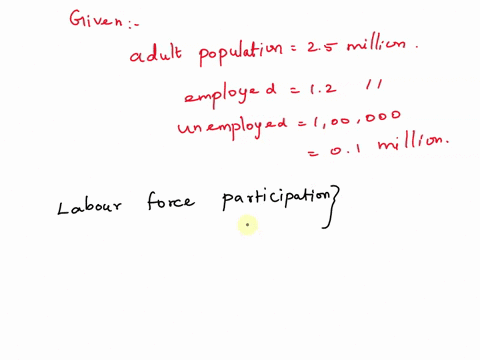 Given:-
adult population = 2.5 million.
employed = 1.2 "
unemployed = 1,00,000
= 0.1 million.
Labour force participation}